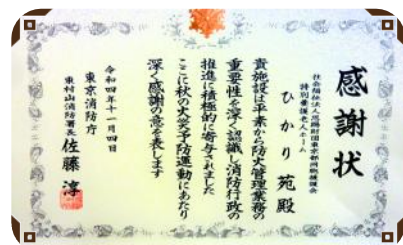 感謝状
社会福祉法人恩賜財団東京都同胞援護会
特別養護老人ホーム
ひかり苑殿
貴施設は平素から防火管理業務の
重要性を深く認識し消防行政の
推進に積極的に寄与されました
ここに秋の火災予防運動にあたり
深く感謝の意を表します
令和四年十一月四日
東京消防庁
東村山消防署長 佐藤淳